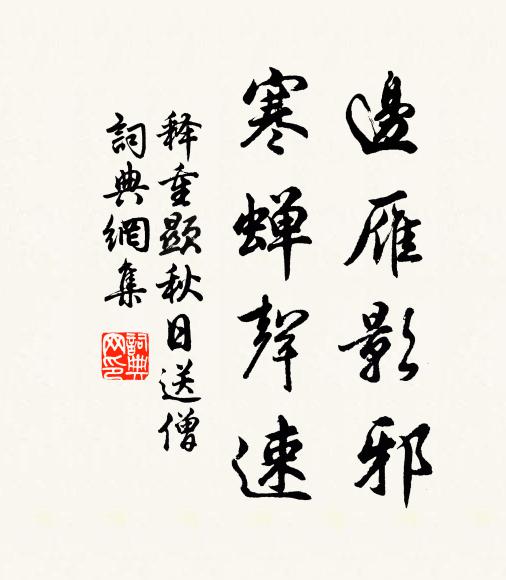 邊雁影邪
寒蟬聲速
释重顯秋日送僧
詞典網集
詞典网印